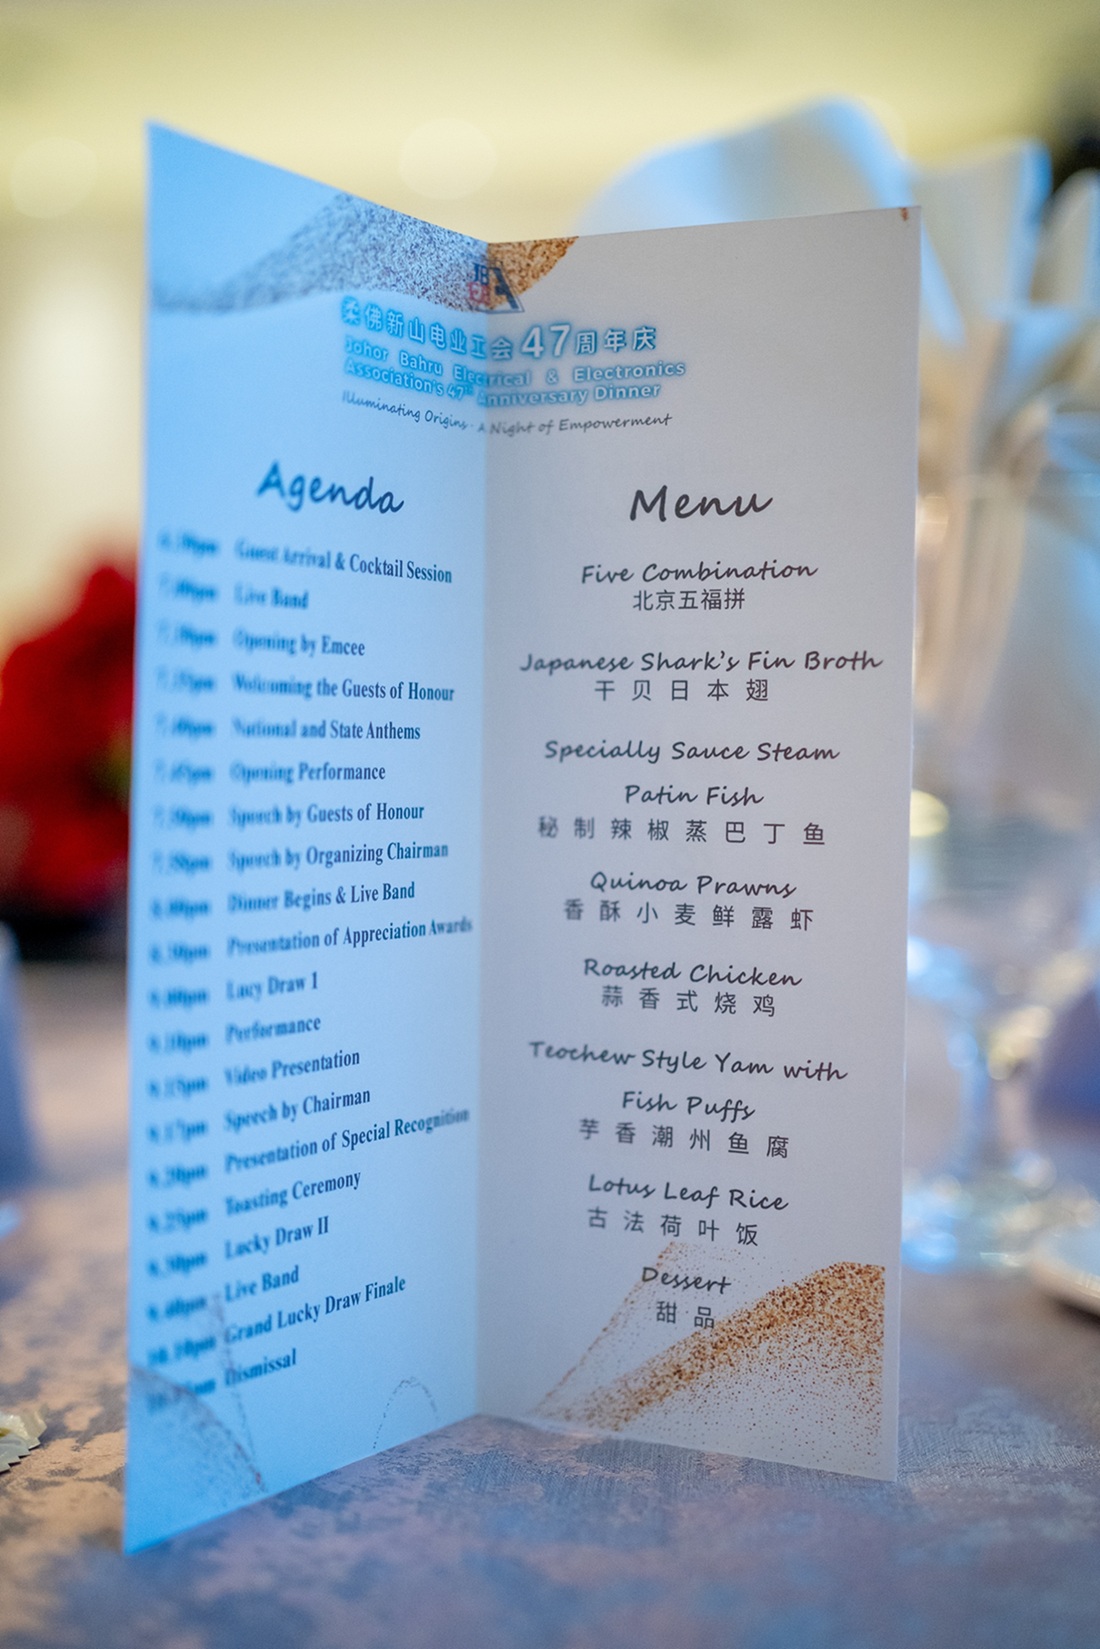 柔佛新山电业工会 47周年庆
Johor Bahru Electrical & Electronics
Association's 47th Anniversary Dinner
Illuminating Origins · A Night of Empowerment
Agenda
Guest Arrival & Cocktail Session
Live Band
Opening by Emcee
Welcoming the Guests of Honour
National and State Anthems
Opening Performance
Speech by Guests of Honour
Speech by Organizing Chairman
Dinner Begins & Live Band
Presentation of Appreciation Awards
Lucy Draw I
Performance
Video Presentation
Speech by Chairman
Presentation of Special Recognition
Toasting Ceremony
Lucky Draw II
Live Band
Grand Lucky Draw Finale
Dismissal
Menu
Five Combination
北京五福拼
Japanese Shark's Fin Broth
干贝日本翅
Specially Sauce Steam
Patin Fish
秘制辣椒蒸巴丁鱼
Quinoa Prawns
香酥小麦鲜露虾
Roasted Chicken
蒜香式烧鸡
Teochew Style Yam with
Fish Puffs
芋香潮州鱼腐
Lotus Leaf Rice
古法荷叶饭
Dessert
甜品